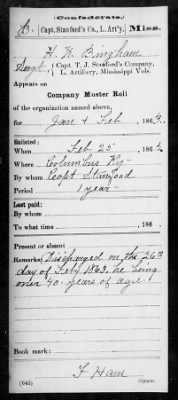 (Confederate.)
B. Capt. Stanford's Co., L. Art'y, Miss.
H. W. Bingham
Sergt, Capt. T. J. Stanford's Company,
L. Artillery, Mississippi Vols.
Appears on
Company Muster Roll
of the organization named above,
for Jan & Feb, 1863.
Enlisted:
When Feb 25, 186
Where Columbus Ky
By whom Capt Stanford
Period 1 year
Last paid:
By whom
To what time, 186
Present or absent
Remarks: Discharged on the 26th
day of Feb'y 1863, he being
over 40 years of age
Book mark:
F Ham
(642) Copyist.